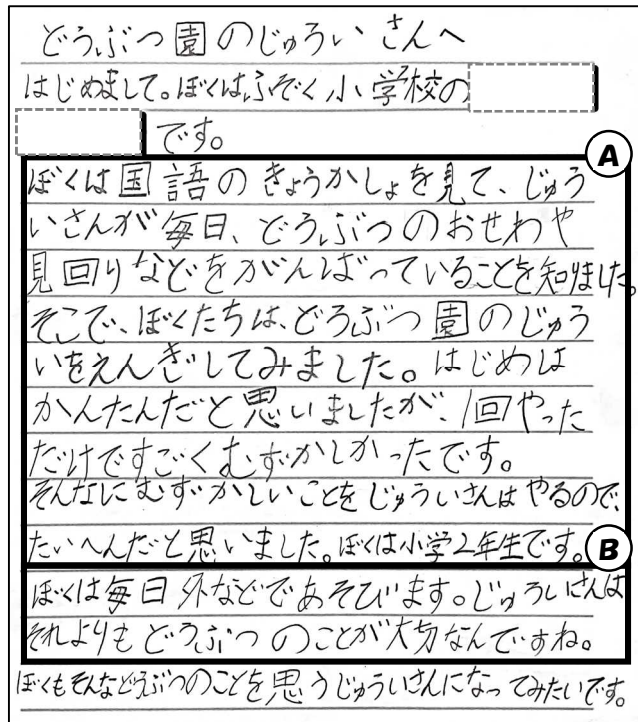 どうぶつ園のじゅういさんへ
はじめまして。ぼくはふぞく小学校の
です。
A
ぼくは国語のきょうかしょを見て、じゅう
いさんが毎日、どうぶつのおせわや
見回りなどをがんばっていることを知りました。
そこで、ぼくたちは、どうぶつ園のじゅう
いをえんぎしてみました。はじめは
かんたんだと思いましたが、1回やった
だけですごくむずかしかったです。
そんなにむずかしいことをじゅういさんはやるので、
たいへんだと思いました。ぼくは小学2年生です。
B
ぼくは毎日外などであそびます。じゅういさんは
それよりもどうぶつのことが大切なんですね。
ぼくもそんなどうぶつのことを思うじゅういさんになってみたいです。